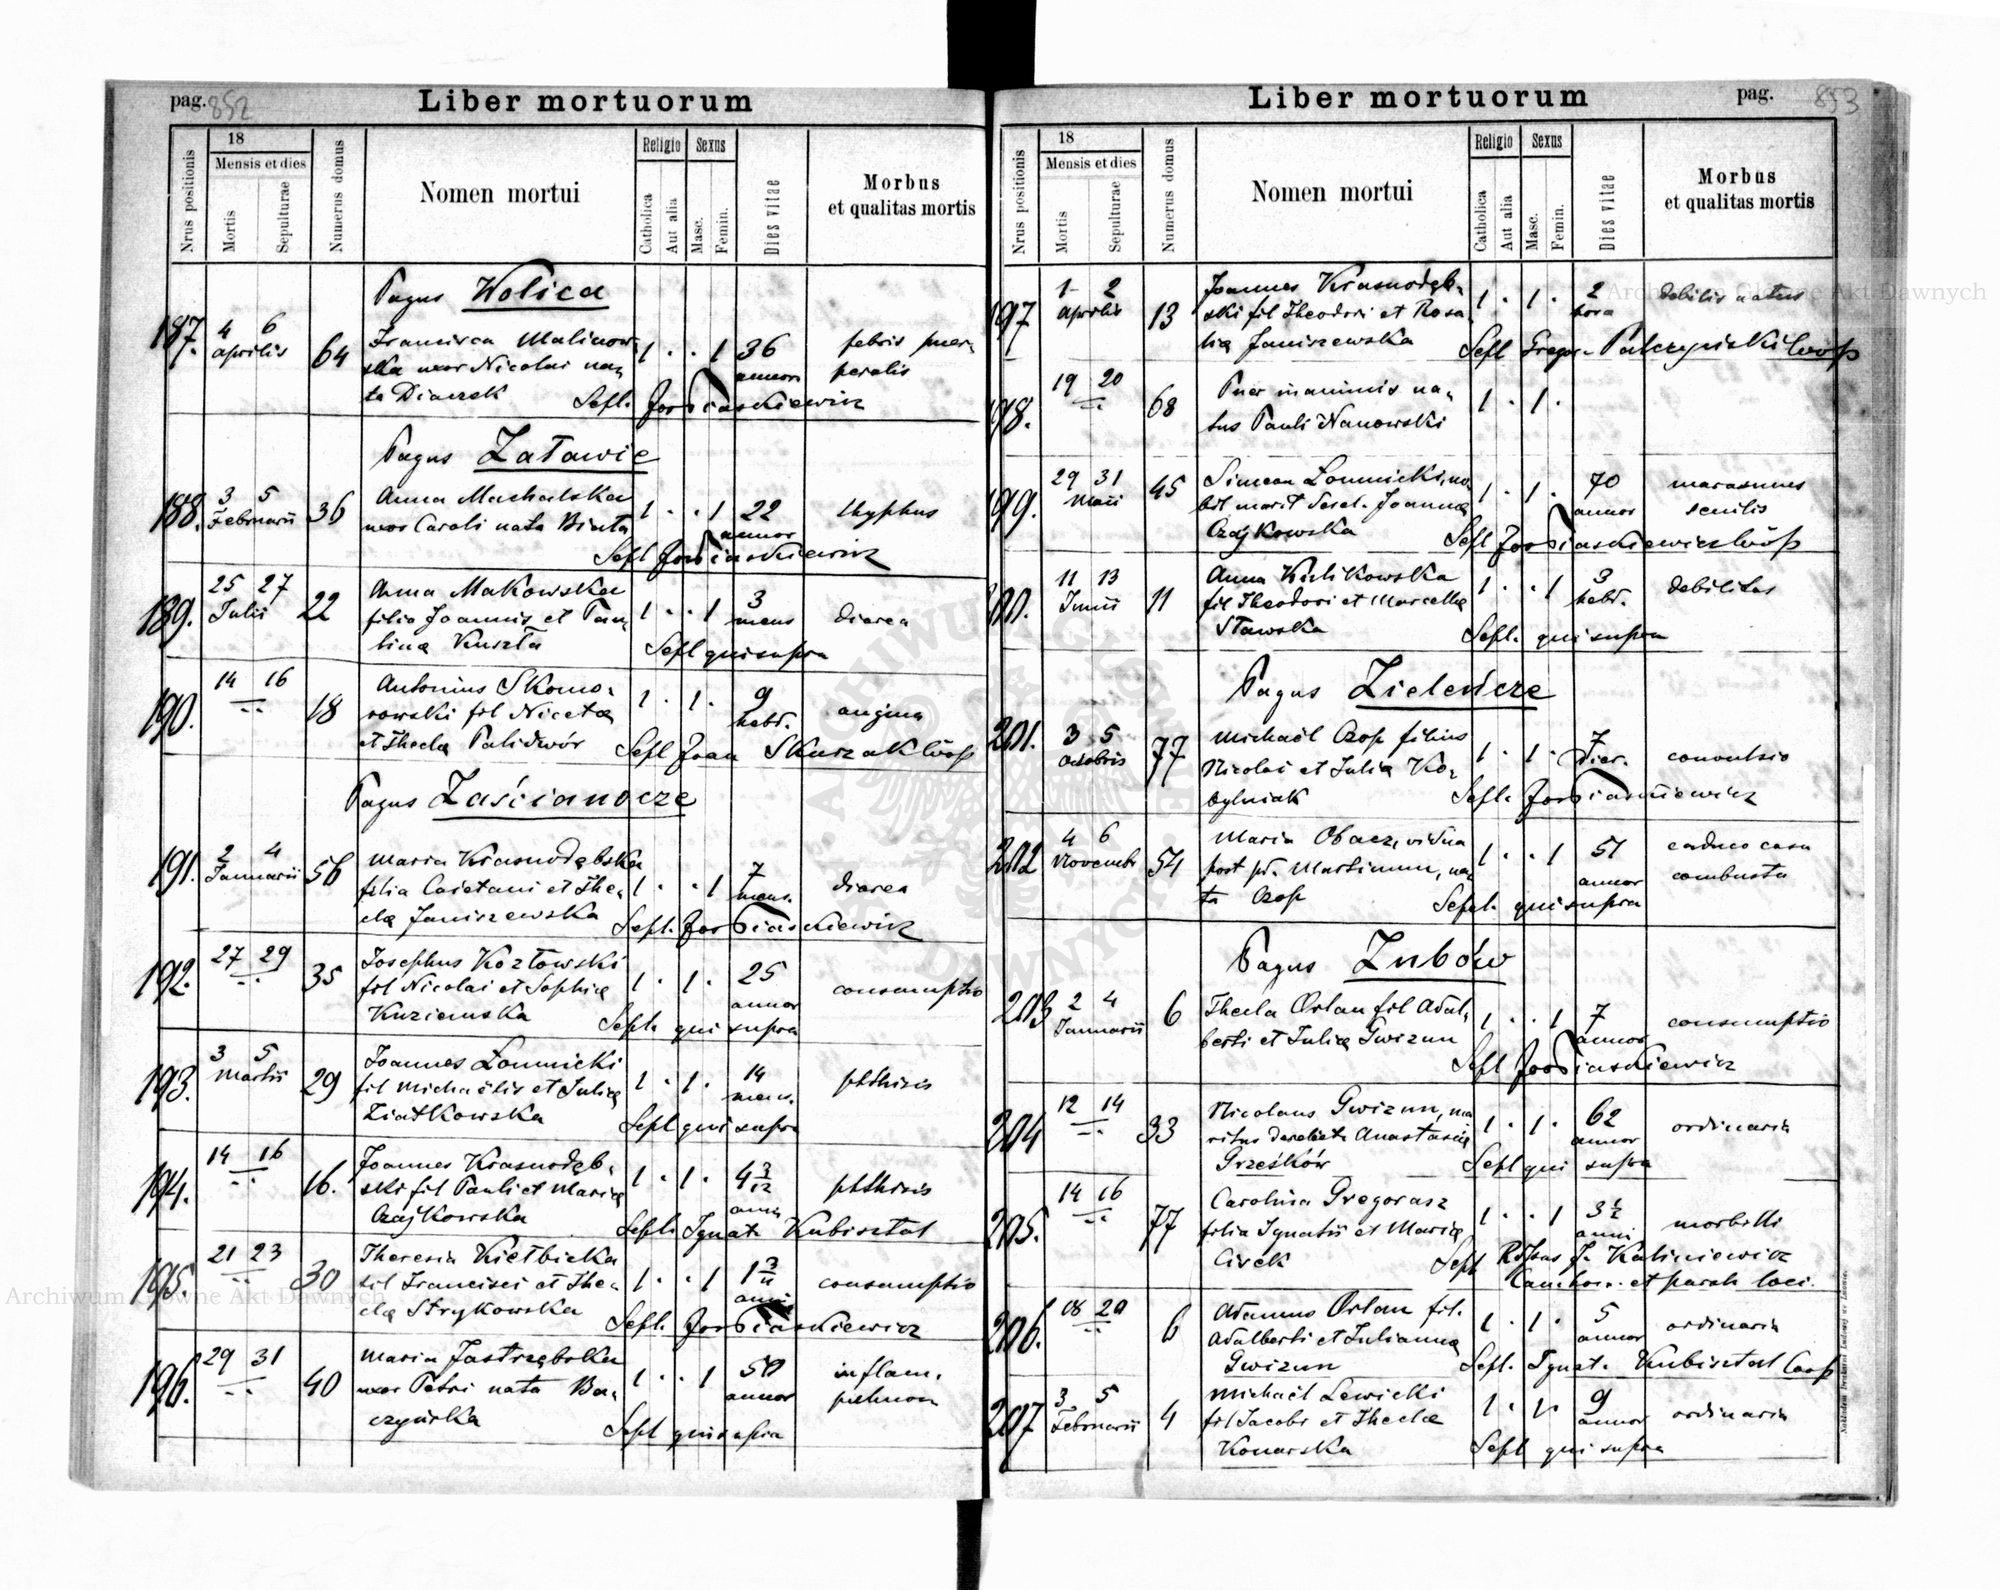 pag. 852
Liber mortuorum
Nrus positionis
18
Mensis et dies
Mortis
Sepulturae
Numerus domus
Nomen mortui
Religio
Catholica
Aut alia
Sexus
Masc.
Femin.
Dies vitae
Morbus
et qualitas mortis
Pagus Wolica
187. 4 6 Aprilis 64 Francisca Malinow-
ska uxor Nicolai na-
ta Diaczek
1 · · 1 36 annor febris puer-
peralis
Sepl. Jos Piaskiewicz
Pagus Załawie
188. 3 5 Februarii 36 Anna Machalska
uxor Caroli nata Binta
1 · · 1 22 annor thyphus
Sepl Jos Piaskiewicz
189. 25 27 Julii 22 Anna Makowska
filia Joannis et Pau-
linae Kuszta
1 · · 1 3 mens diarea
Sepl qui supra
190. 14 16 -"- 18 Antonius Skomo-
rowski fil Nicetae
et Theclae Palidwór
1 · 1 · 9 hebd. angina
Sepl Joan Skurzak
Pagus Zaścianocze
191. 2 4 Januarii 56 Maria Krasnodębska
filia Caietani et The-
clae Janiszewska
1 · · 1 7 mens. diarea
Sepl. Jos Piaskiewicz
192. 27 29 -"- 35 Josephus Kozłowski
fil Nicolai et Sophiae
Kuziemska
1 · 1 · 25 annor consumptio
Sepl. qui supra
193. 3 5 Martii 29 Joannes Łomnicki
fil Michaëlis et Juliae
Ziatkowska
1 · 1 · 14 mens. phthisis
Sepl qui supra
194. 14 16 -"- 16. Joannes Krasnodęb-
ski fil Pauli et Mariae
Czajkowska
1 · 1 · 4 3/12 anni phthisis
Sepl. Ignat. Kubisztal
195. 21 23 -"- 30 Theresia Kiełbicka
fil Francisci et The-
clae Strykowska
1 · · 1 consumptio
Sepl. Jos Piaskiewicz
196. 29 31 -"- 40 Maria Jastrzębska
uxor Petri nata Ba-
czyńska
1 · · 1 50 annor inflam.
pulmon
Sepl qui supra
Liber mortuorum
pag. 853
Nrus positionis
18
Mensis et dies
Mortis
Sepulturae
Numerus domus
Nomen mortui
Religio
Catholica
Aut alia
Sexus
Masc.
Femin.
Dies vitae
Morbus
et qualitas mortis
197 1 2 Aprilis 13 Joannes Krasnodęb-
ski fil Theodori et Rosa-
liae Janiszewska
1 · 1 · 2 hora debilis natus
Sepl Gregor. Palczyński
198. 19 20 -"- 68 Puer inanimis na-
tus Pauli Nanowski
1 · 1 ·
199. 29 31 Maii 45 Simeon Łomnicki, no-
bil marit derel. Joannae
Czajkowska
1 · 1 · 70 annor marasmus
senilis
Sepl Jos Piaskiewicz
200. 11 13 Junii 11 Anna Kulikowska
fil Theodori et Marcellae
Stawska
1 · · 1 3 hebd. debilitas
Sepl. qui supra
Pagus Zieleńcze
201. 3 5 Octobris 77 Michaël Czop filius
Nicolai et Juliae Ko-
bylniak
1 · 1 · 7 dier. convulsio
Sepl. Jos Piaskiewicz
202 4 6 Novembr 54 Maria Obacz, vidua
post pd. Martinum, na-
ta Czop
1 · · 1 51 annor caduco casu
combusta
Sepul. qui supra
Pagus Zubów
203 2 4 Januarii 6 Thecla Orlan fil Adal-
berti et Juliae Gwizun
1 · · 1 7 annor consumptio
Sepl Jos Piaskiewicz
204 12 14 -"- 33 Nicolaus Gwizun, ma-
ritus derelictae Anastasiae
Grześków
1 · 1 · 62 annor ordinaria
Sepl qui supra
205. 14 16 -"- 77 Carolina Gregorasz
filia Ignatii et Mariae
Circk
1 · · 1 3 1/2 anni morbilli
Sepl J. Kaliniewicz
et paroh loci.
206. 18 20 -"- 6 Adamus Orlan fil.
Adalberti et Juliannae
Gwizun
1 · 1 · 5 annor ordinaria
Sepl. Ignat. Kubisztal Coop
207 3 5 Februarii 4 Michaël Lewicki
fil Jacobi et Theclae
Konarska
1 · 1 · 9 annor ordinaria
Sepl qui supra
Archiwum Główne Akt Dawnych
Archiwum Główne Akt Dawnych
ARCHIWUM GŁÓWNE AKT DAWNYCH